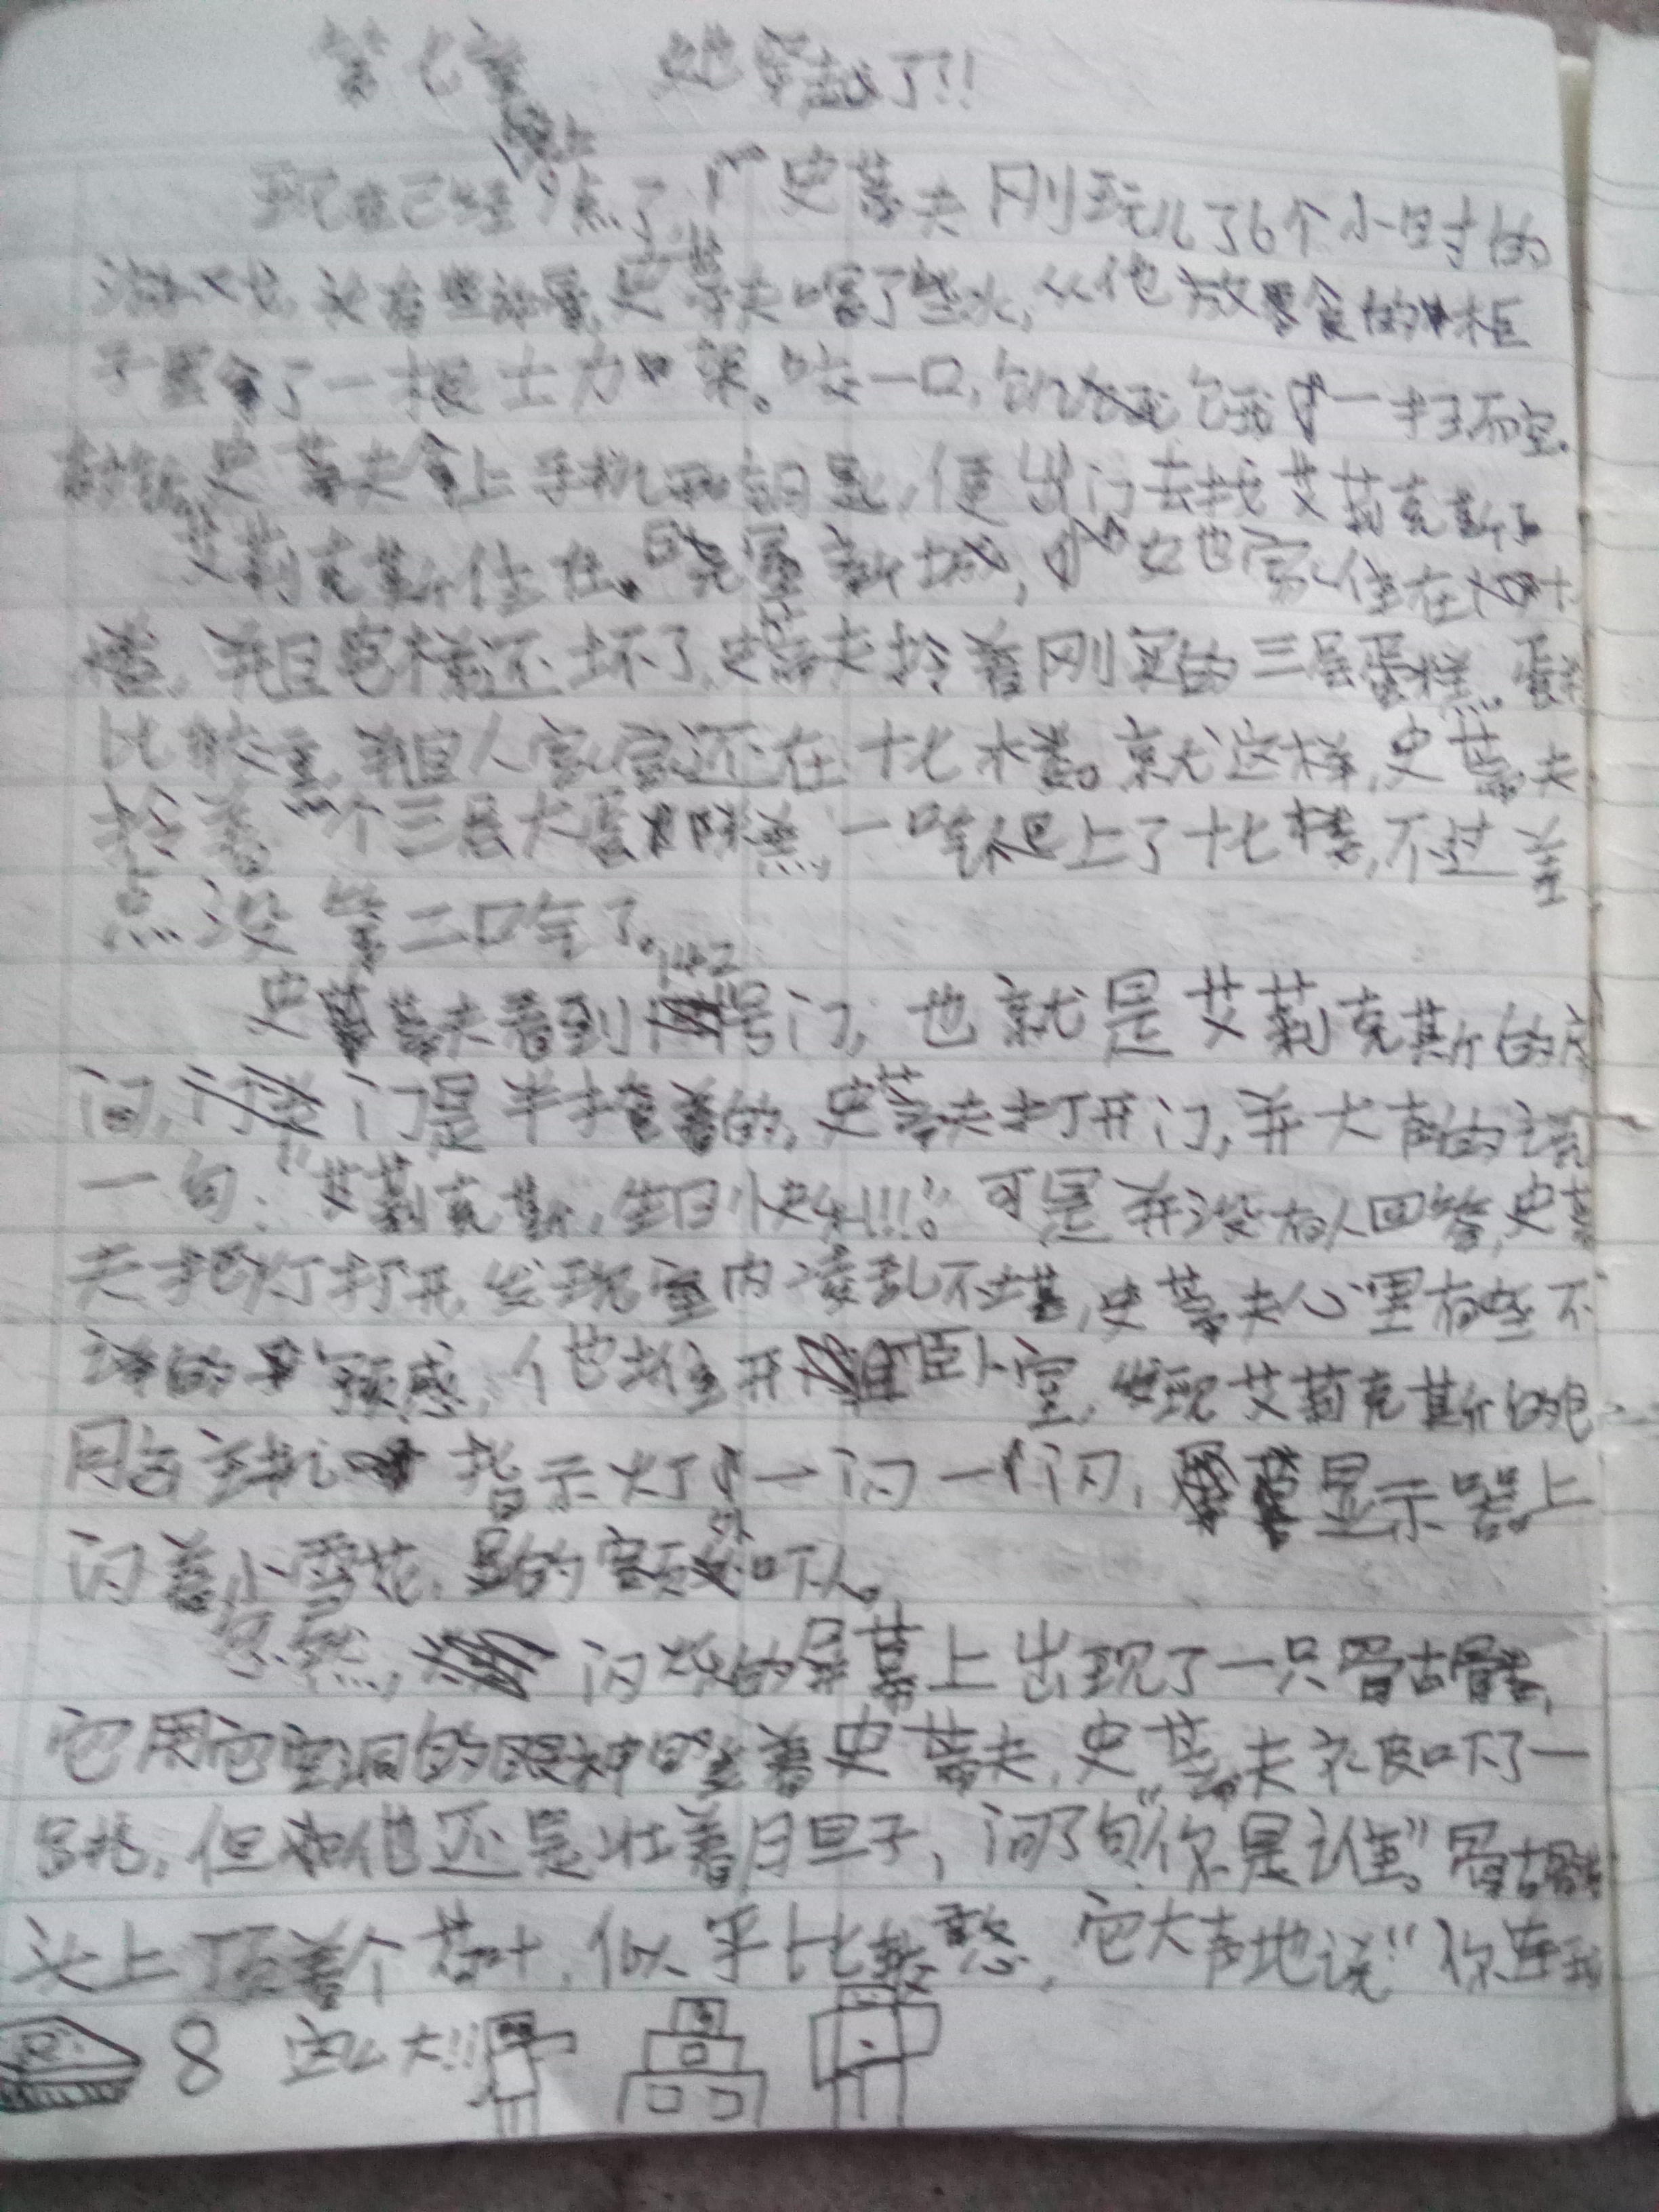 第七章 她穿越了!!
现在已经晚上9点了,史蒂夫刚玩儿了6个小时的
游戏,史蒂夫喝了些水,从他放零食的柜
子里拿了一根士力架。咬一口,饥饿一扫而空。
史蒂夫拿上手机和钥匙,便出门去找艾莉克斯了
艾莉克斯住在 新城,她家住在
楼,并且电梯还坏了,史蒂夫拎着刚买的三层蛋糕。蛋糕
比较重,并且人家家还在十七楼。就这样,史蒂夫
拎着一个三层大蛋糕,一口气爬上了十七楼,不过差
点没第二口气了。
史蒂夫看到142号门,也就是艾莉克斯的房
间,门是半掩着的,史蒂夫打开门,并大声的说
一句:"艾莉克斯,生日快乐!!!"。可是并没有人回答,史蒂
夫把灯打开,发现室内凌乱不堪,史蒂夫心里有些不
详的预感,他推开卧室,发现艾莉克斯的电
脑主机指示灯一闪一闪,显示器上
闪着小雪花,显的额外吓人。
忽然,闪灰的屏幕上出现了一只骨古髅,
它用它空洞的眼神盯着史蒂夫,史蒂夫被吓了一
跳,但他还是壮着胆子,问了句"你是谁"。骨古髅
头上顶着个荷叶,似乎比较憨,它大声地说"你连我
8 这么大!!!